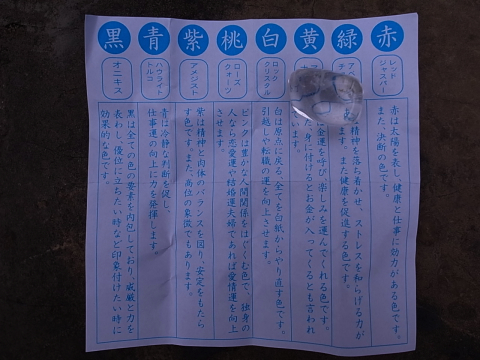 赤
レッド
ジャスパー
赤は太陽を表し、健康と仕事に効力がある色です。
また、決断の色です。
緑
精神を落ち着かせ、ストレスを和らげる力が
ます。また健康を促進する色です。
黄
金運を呼び楽しみを運んでくれる色です。
身に付けるとお金が入ってくるとも言われ
白
ロック
クリスタル
白は原点に戻る、全てを白紙からやり直す色です。
引越しや転職の運を向上させます。
桃
ローズ
クォーツ
ピンクは豊かな人間関係をはぐくむ色で、独身の
人なら恋愛運や結婚運夫婦であれば愛情運を向上
させます。
紫
アメジスト
紫は精神と肉体のバランスを図り、安定をもたら
す色です。また、高位の象徴でもあります。
青
ハウライト
トルコ
青は冷静な判断を促し、
仕事運の向上に力を発揮します。
黒
オニキス
黒は全ての色の要素を内包しており、威厳と力を
表わし、優位に立ちたい時など印象付けたい時に
効果的な色です。